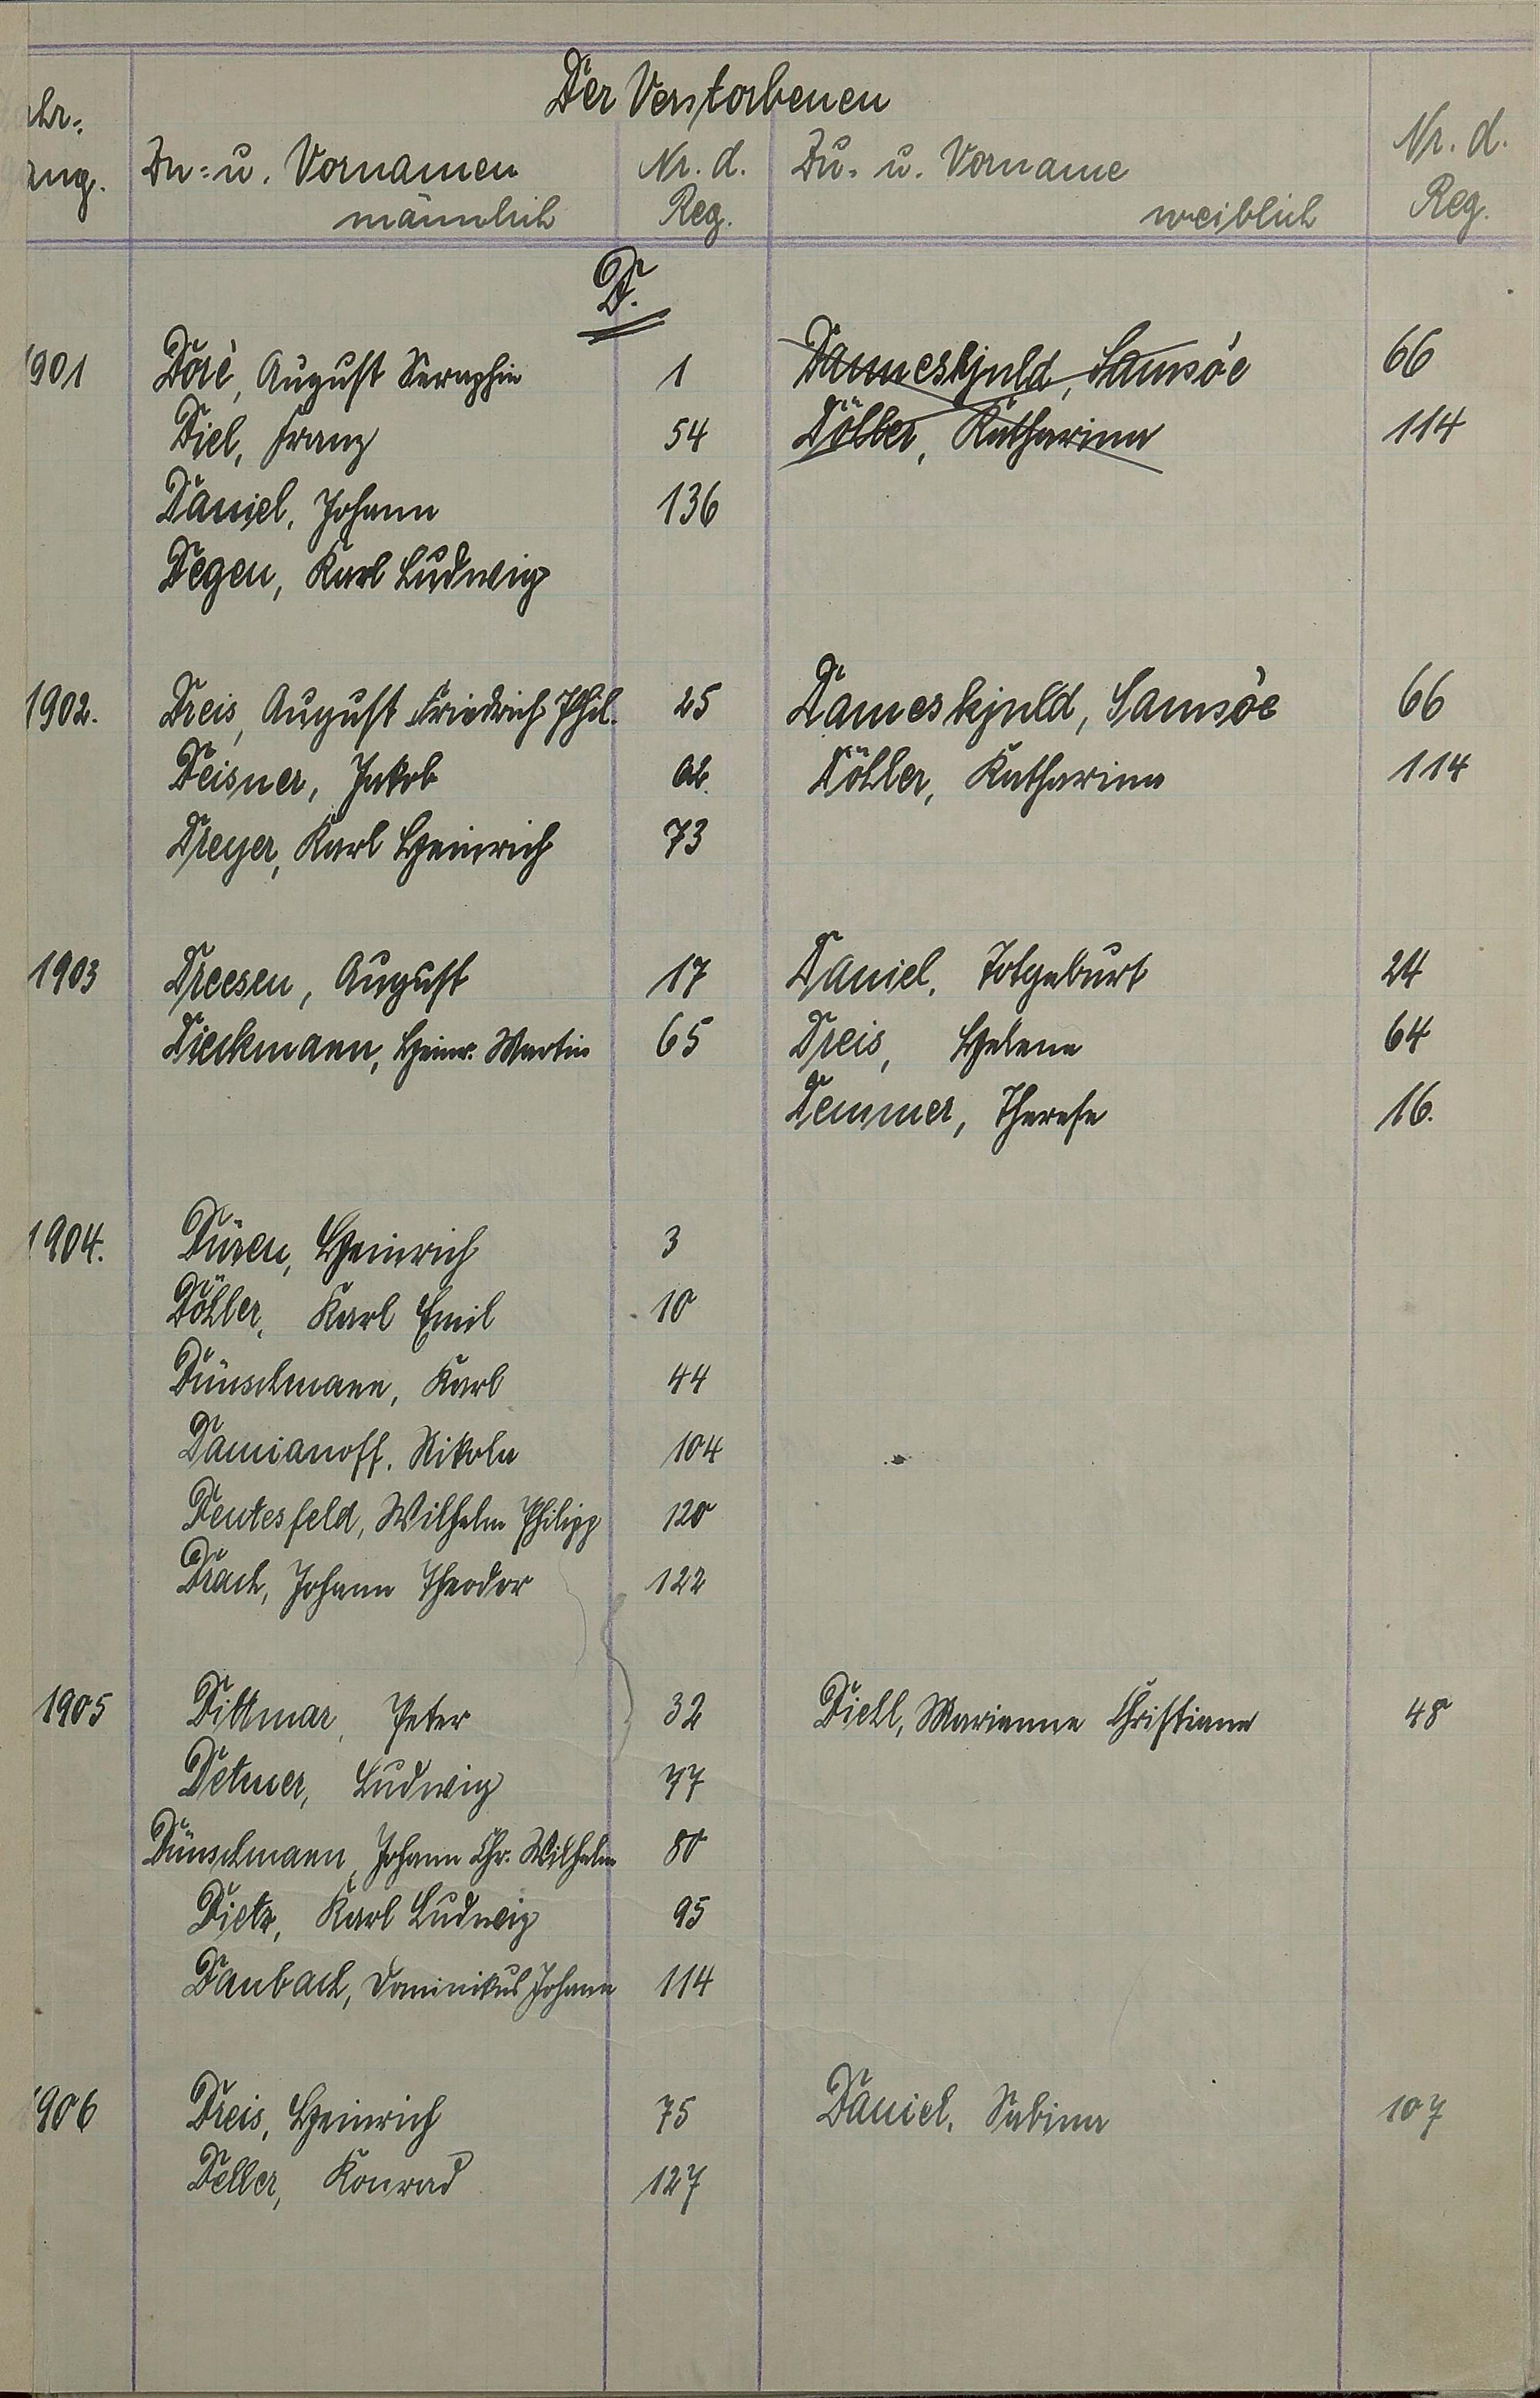 Der Verstorbenen
ahr-
ang.
Zu- u. Vornamen
männlich
Nr. d.
Reg.
Zu- u. Vorname
weiblich
Nr. d.
Reg.
D.
1901 Doré, August Seraphin 1 Danneskjuld, Samsöe 66
Diel, Franz 54 Döller, Katharina 114
Daniel, Johann 136
Degen, Karl Ludwig
1902. Dreis, August Friedrich Phil. 25 Dameskjuld, Samsöe 66
Deisner, Jakob Döller, Katharina 114
Dreyer, Karl Heinrich 73
1903 Dreesen, August 17 Daniel, Totgeburt 24
Dieckmann, Heinr. Martin 65 Dreis, Helene 64
Demmer, Therese 16.
1904. Düren, Heinrich 3
Döller, Karl Emil 10
Dünschmann, Karl 44
Damianoff, Nikola 104
Deutesfeld, Wilhelm Philipp 120
Drach, Johann Theodor 122
1905 Dittmar, Peter 32 Diehl, Marianne Christiane 48
Detmer, Ludwig 77
Dünschmann, Johann Chr. Wilhelm 80
Dietz, Karl Ludwig 95
Daubach, Dominikus Johann 114
1906 Dreis, Heinrich 75 Daniel, Sabina 107
Deller, Konrad 127